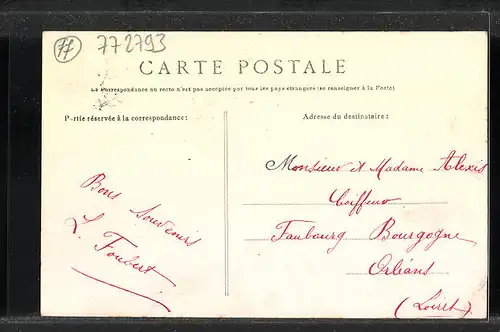 77 772793
CARTE POSTALE
La Correspondance au recto n'est pas acceptée par tous les pays étrangers (se renseigner à la Poste)
Partie réservée à la correspondance:
Adresse du destinataire:
Bons Souvenirs
L. Foubert
Monsieur et Madame Alexis
Coiffeur
Faubourg Bourgogne
Orléans
(Loiret)